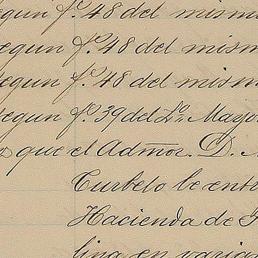 segun fº. 48 del mismo
segun fº. 48 del mismo
segun fº. 48 del mismo
segun fº. 39 del Lº. Mayor
que el Admor. D.
Curbelo le ent
Hacienda de
en varias